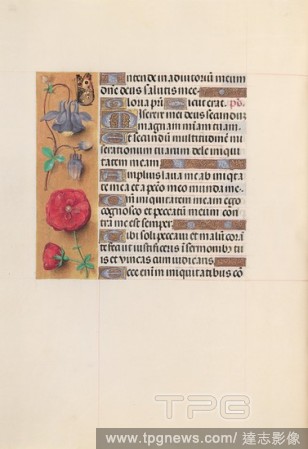 Intende in adiutoriū meum
one deus salutis mee
Gloria pri Sicut erat. ps
Miserere mei deus secundū
magnam miām tuam
Et secundū multitudinē mi
serationum tuarum dele iniqui
tatem meam
Amplius laua me ab iniquita
te mea et a pctō meo munda me
Qm iniquitatem meam ego
cognosco et peccatū meum con
tra me est semper
Tibi soli peccaui et malū corā
te feci ut iustificeris ī sermonibꝰ tu
is et vincas cum iudicaris
Ecce enim in iniquitatibus cō
TPG
www.tpgnews.com/ 達志影像